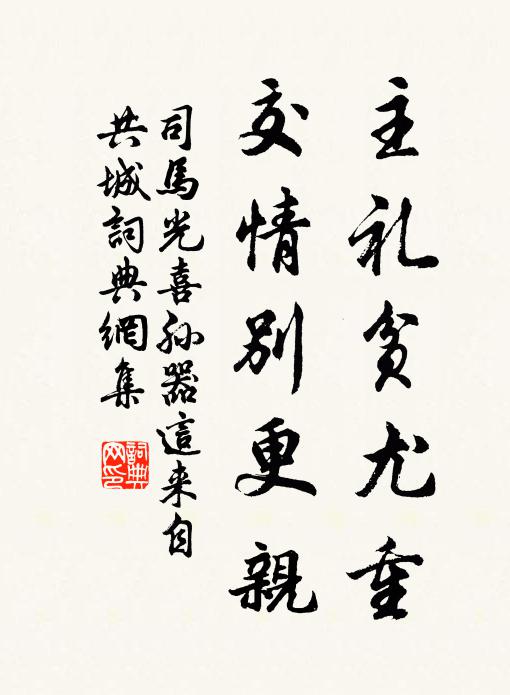 主礼贫尤重
交情别更親
司馬光喜孙器這来自
共城詞典網集
詞典網印